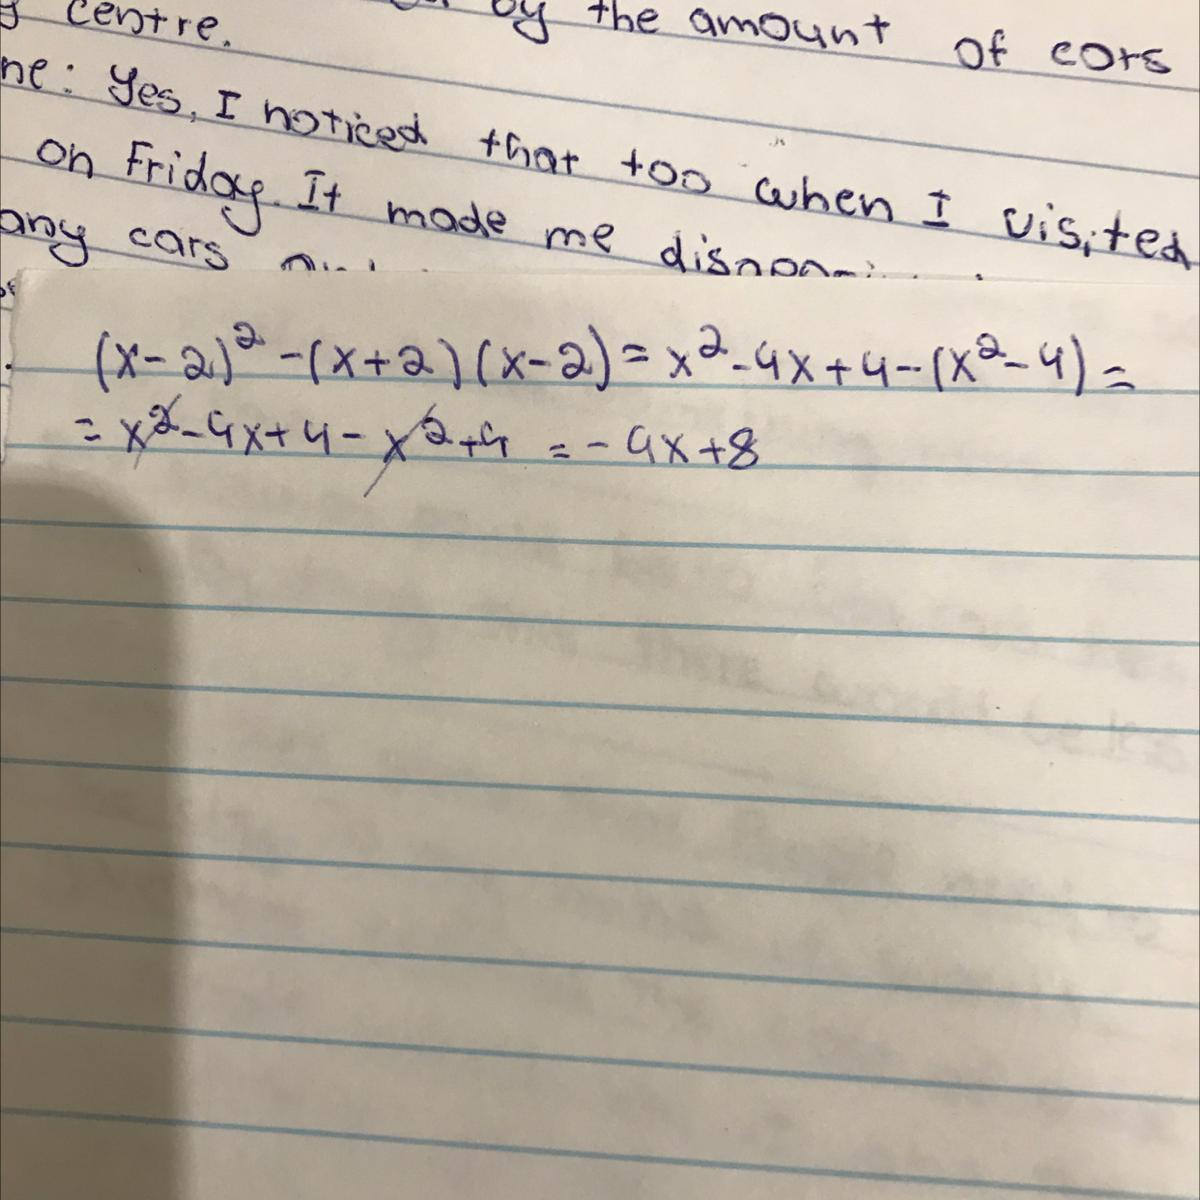 centre. by the amount of cars
ne: Yes, I noticed that too when I visited
on Friday. It made me
any cars
(x-2)² -(x+2)(x-2)= x²-4x+4-(x²-4)=
= x²-4x+4-x²+4 = -4x+8